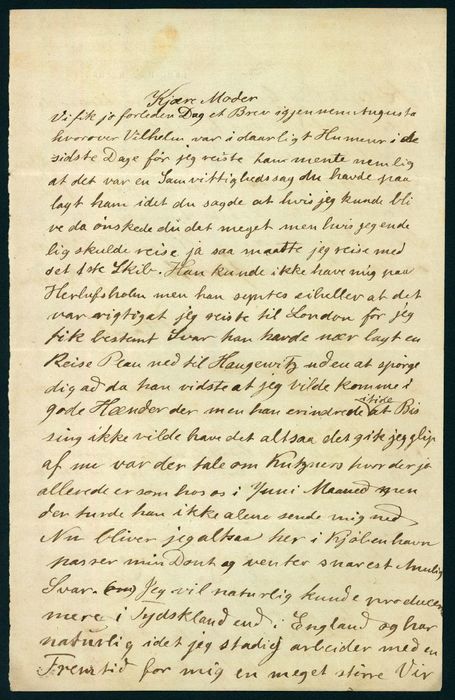 Kjære Moder
Vi fik jo forleden Dag et Brev igjennem Augusta
hvorover Vilhelm var i daarligt Humeur i de
sidste Dage för jeg reiste han mente nemlig
at det var en Samvittighedssag du havde paa
lagt ham idet du sagde at hvis jeg kunde bli
ve da önskede du det meget men hvis jeg ende
lig skulde reise ja saa maatte jeg reise med
det 1ste Skib. Han kunde ikke have mig paa
Herlufsholm men han syntes eiheller at det
var rigtigat jeg reiste til London för jeg
fik bestemt Svar han havde nær lagt en
Reise Plan ned til Haugewitz uden at spörge
dig ad da han vidste at jeg vilde komme i
gode Hænder der men han erindrede itide at Bis
sing ikke vilde have det altsaa det gik jeg glip
af nu var der tale om Kutzners hvor der jo
allerede er som hos os i Juni Maaned men
der turde han ikke alene sende mig ned
Nu bliver jeg altsaa her i Kjöbenhavn
passer min Dont og venter snarest Muelig
Svar. Jeg vil naturlig kunde producere
mere i Tydskland end i England og har
naturlig idet jeg stadig arbeider med en
Fremtid for mig en meget större Vir